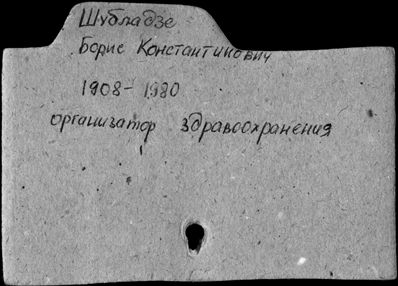 Шубладзе
Борис Константинович
1908-1980
организатор здравоохранения